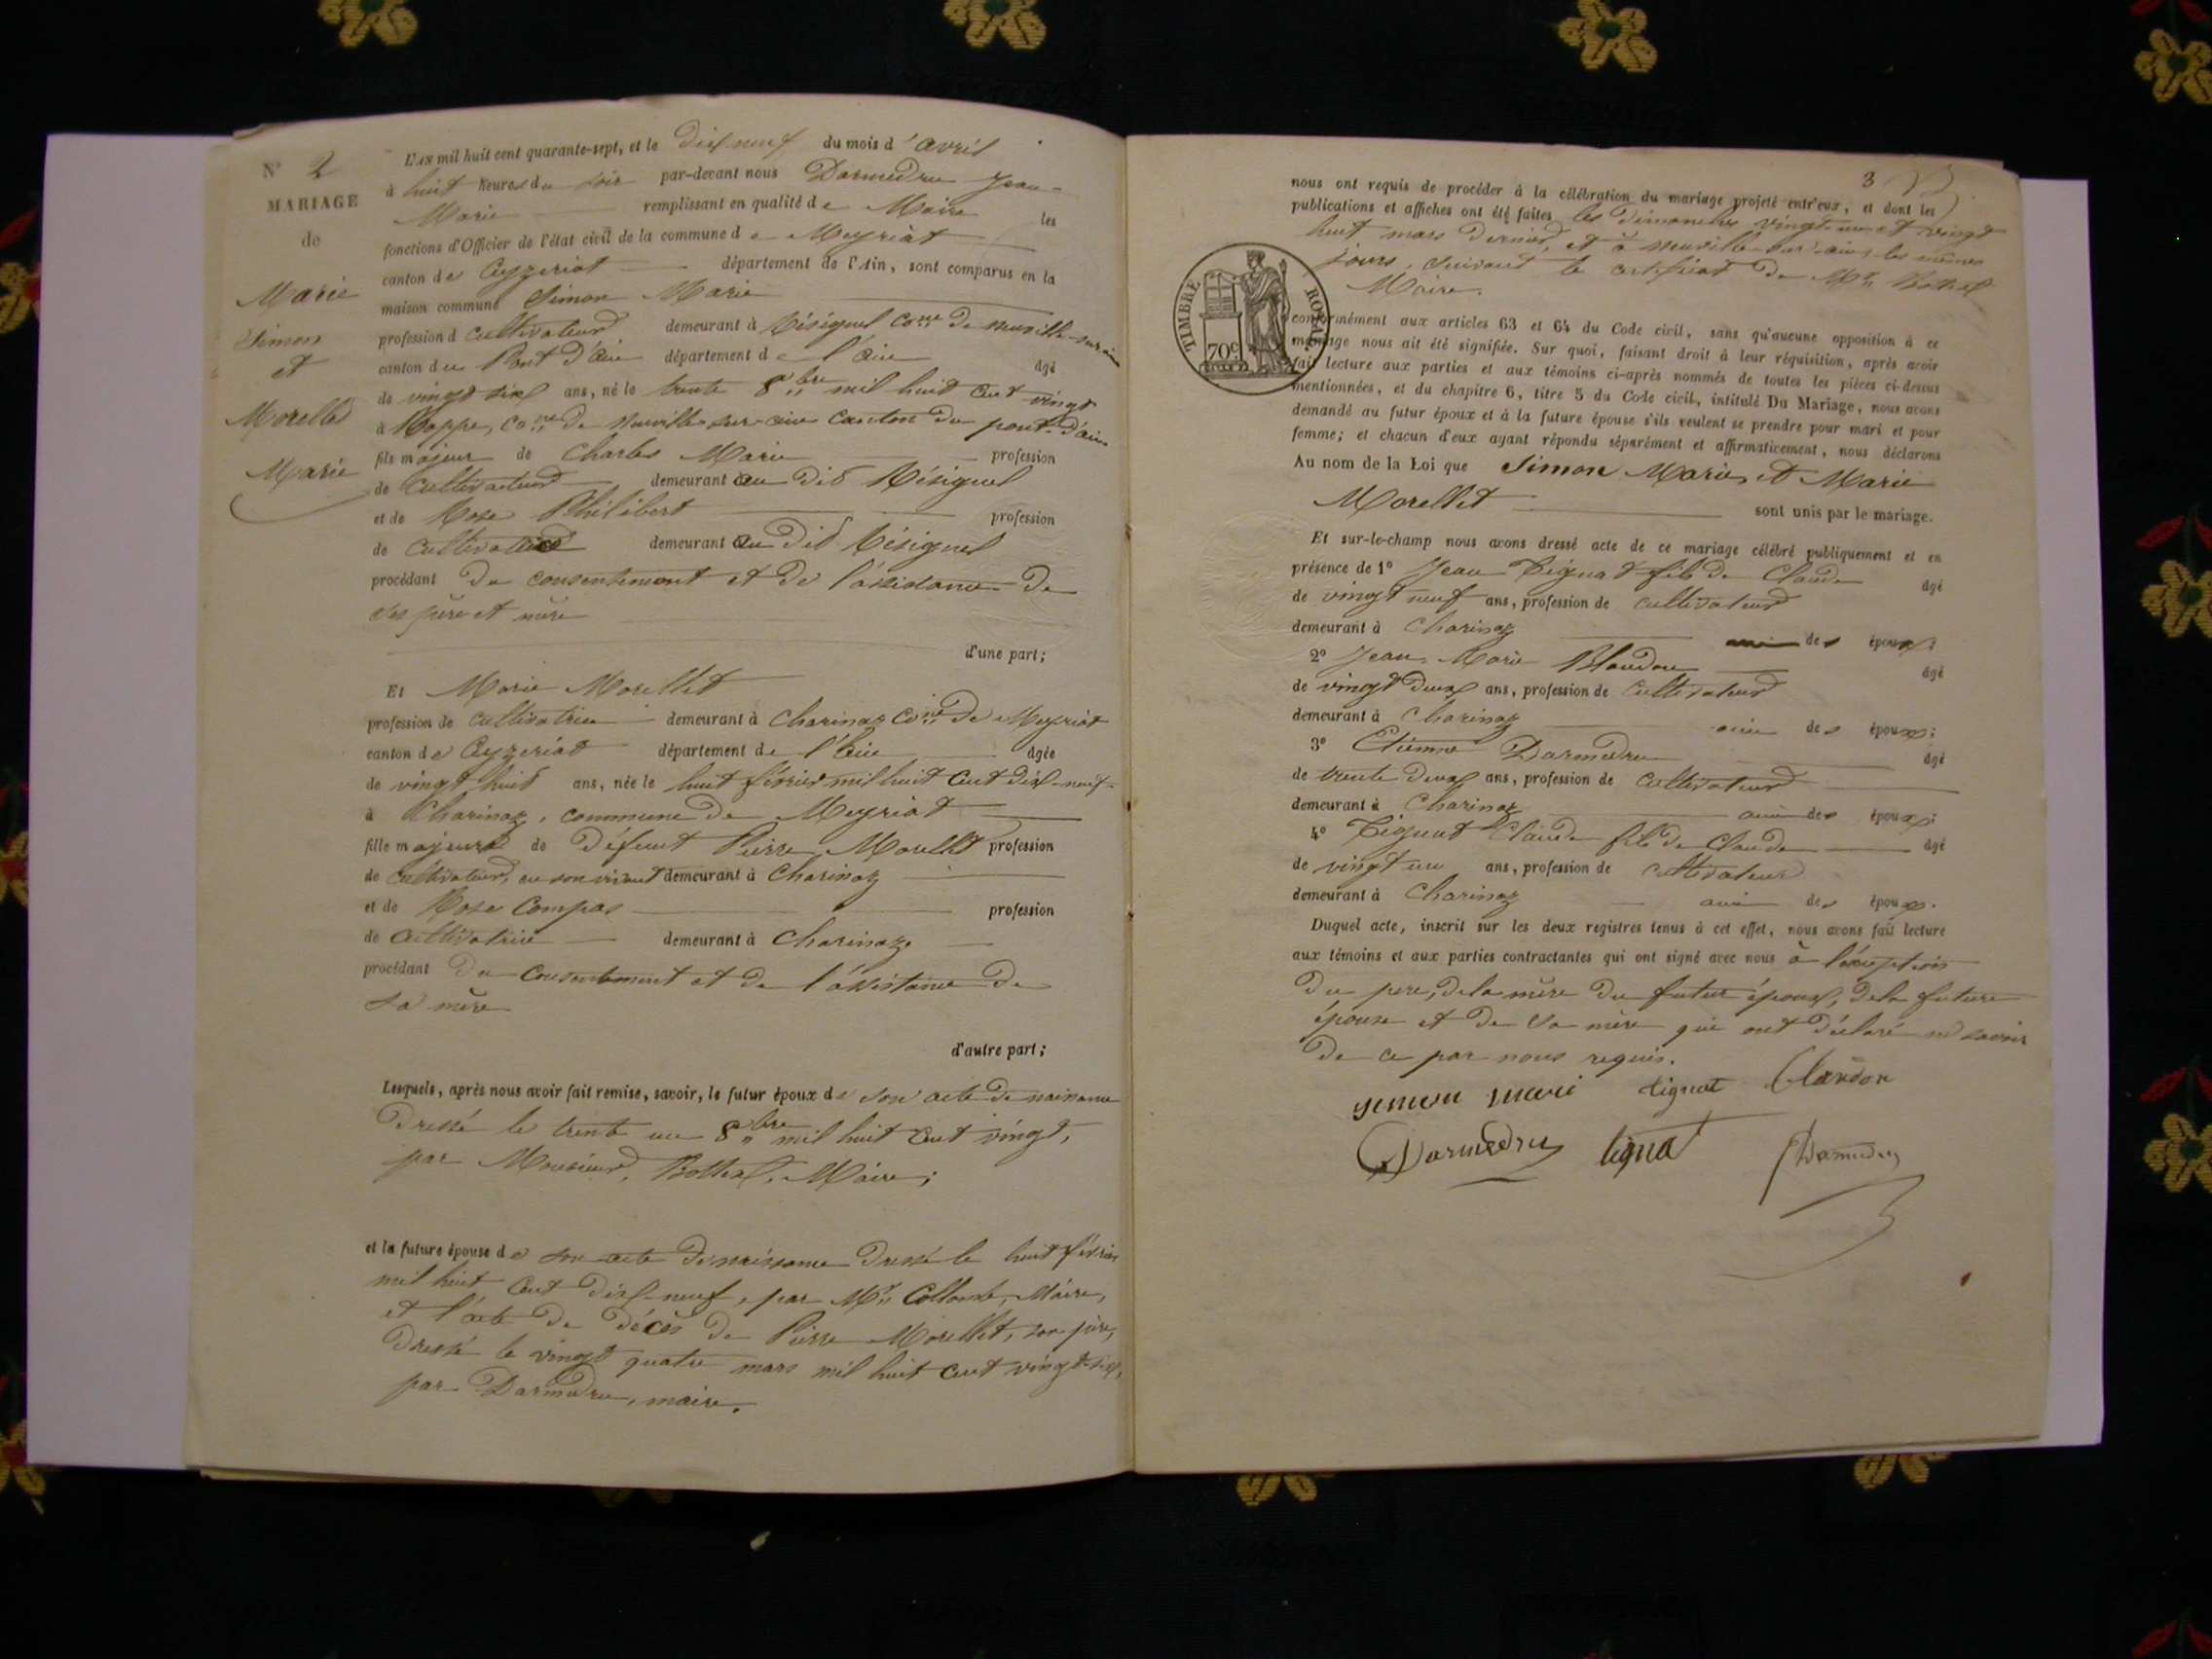 N° 2
MARIAGE
de
Marie
Simon
et
Morellet
Marie
L'AN mil huit cent quarante-sept, et le dix neuf du mois d'avril
à huit heures du soir par-devant nous Darmedru Jean-
Marie remplissant en qualité de Maire les
fonctions d'Officier de l'état civil de la commune de Meyriat
canton de Ceyzeriat département de l'Ain, sont comparus en la
maison commune Simon Marie
profession d cultivateur demeurant à Résignel Co.ne de Neuville-sur-ain
canton du Pont d'ain département de l'ain âgé
de vingt six ans, né le trente 8bre mil huit cent vingt
à Rappe, Co.ne de Neuville-sur-ain canton du pont-d'ain
fils majeur de Charles Marie profession
de cultivateur demeurant au dit Résignel
et de Rose Philibert profession
de cultivatrice demeurant au dit Résignel
procédant du consentement et de l'assistance de
ses père et mère
d'une part;
Et Marie Morellet
profession de cultivatrice demeurant à Charinaz Co.ne de Meyriat
canton de Ceyzeriat département de l'Ain âgée
de vingt huit ans, née le huit février mil huit cent dix-neuf
à Charinaz, commune de Meyriat
fille majeure de défunt Pierre Morellet profession
de cultivateur, en son vivant demeurant à Charinaz
et de Rose Compas profession
de cultivatrice demeurant à Charinaz
procédant du consentement et de l'assistance de
sa mère
d'autre part;
Lesquels, après nous avoir fait remise, savoir, le futur époux de son acte de naissance
dressé le trente un 8bre mil huit cent vingt,
par Monsieur, Maire;
et la future épouse de son acte de naissance dressé le huit février
mil huit cent dix-neuf, par Mr Collombe, Maire,
et l'acte de décès de Pierre Morellet, son père,
dressé le vingt quatre mars mil huit cent vingt-six,
par Darmedru, maire.
3
nous ont requis de procéder à la célébration du mariage projeté entr'eux, et dont les
publications et affiches ont été faites les dimanches vingt-un et vingt
huit mars dernier, et à Neuville-sur-ain les mêmes
jours, suivant le certificat de Mr
Maire.
TIMBRE ROYAL
70c
conformément aux articles 63 et 64 du Code civil, sans qu'aucune opposition à ce
mariage nous ait été signifiée. Sur quoi, faisant droit à leur réquisition, après avoir
fait lecture aux parties et aux témoins ci-après nommés de toutes les pièces ci-dessus
mentionnées, et du chapitre 6, titre 5 du Code civil, intitulé Du Mariage, nous avons
demandé au futur époux et à la future épouse s'ils veulent se prendre pour mari et pour
femme; et chacun d'eux ayant répondu séparément et affirmativement, nous déclarons
Au nom de la Loi que Simon Marie, et Marie
Morellet sont unis par le mariage.
Et sur-le-champ nous avons dressé acte de ce mariage célébré publiquement et en
présence de 1° Jean Tignat fils de Claude âgé
de vingt neuf ans, profession de cultivateur
demeurant à Charinaz ami des époux;
2° Jean-Marie Blandon âgé
de vingt deux ans, profession de cultivateur
demeurant à Charinaz ami des époux;
3° Etienne Darmedru âgé
de trente deux ans, profession de cultivateur
demeurant à Charinaz ami des époux;
4° Tignat Claude fils de Claude âgé
de vingt un ans, profession de cultivateur
demeurant à Charinaz ami des époux.
Duquel acte, inscrit sur les deux registres tenus à cet effet, nous avons fait lecture
aux témoins et aux parties contractantes qui ont signé avec nous à l'exception
du père, de la mère du futur époux, de la future
épouse et de sa mère qui ont déclaré ne savoir
de ce par nous requis.
simon marie tignat Blandon
Darmedru tignat Darmedru